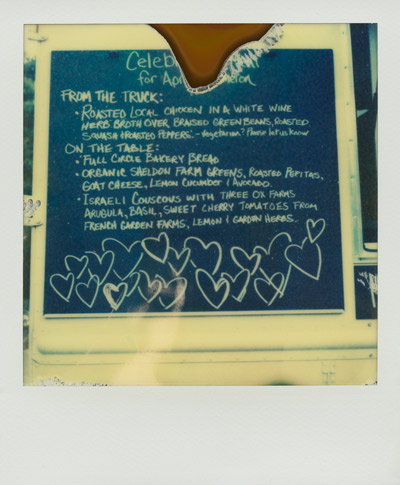 Celebr
for Ap
FROM THE TRUCK:
• ROASTED LOCAL CHICKEN IN A WHITE WINE
HERB BROTH OVER BRAISED GREEN BEANS, ROASTED
SQUASH & ROASTED PEPPERS. - Vegetarian? Please let us know
ON THE TABLE:
• FULL CIRCLE BAKERY BREAD
• ORGANIC SHELDON FARM GREENS, ROASTED PEPITAS,
GOAT CHEESE, LEMON CUCUMBER & AVOCADO.
• ISRAELI COUSCOUS WITH THREE OX FARMS
ARUGULA, BASIL, SWEET CHERRY TOMATOES FROM
FRENCH GARDEN FARMS, LEMON & GARDEN HERBS.